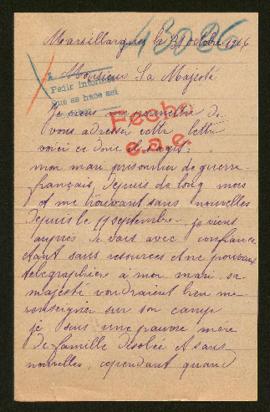 43086
Marsillargues le 21 octobre 1916
Monsieur Sa Majesté
Pedir informes
que se hace asi
Fecho
Je viens me permettre de
vous adresser cette lettre
voici ce dont il s'agit
e.s.e.
mon mari prisonnier de guerre
français, depuis de long mois
et me trouvant sans nouvelles
depuis le 11 septembre je viens
auprès de vous avec confiance
étant sans ressources et ne pouvant
télégraphier à mon mari sa
majesté voudraient bien me
renseigner sur son camp
je suis une pauvre mère
de famille désolée et sans
nouvelles, cependant quand